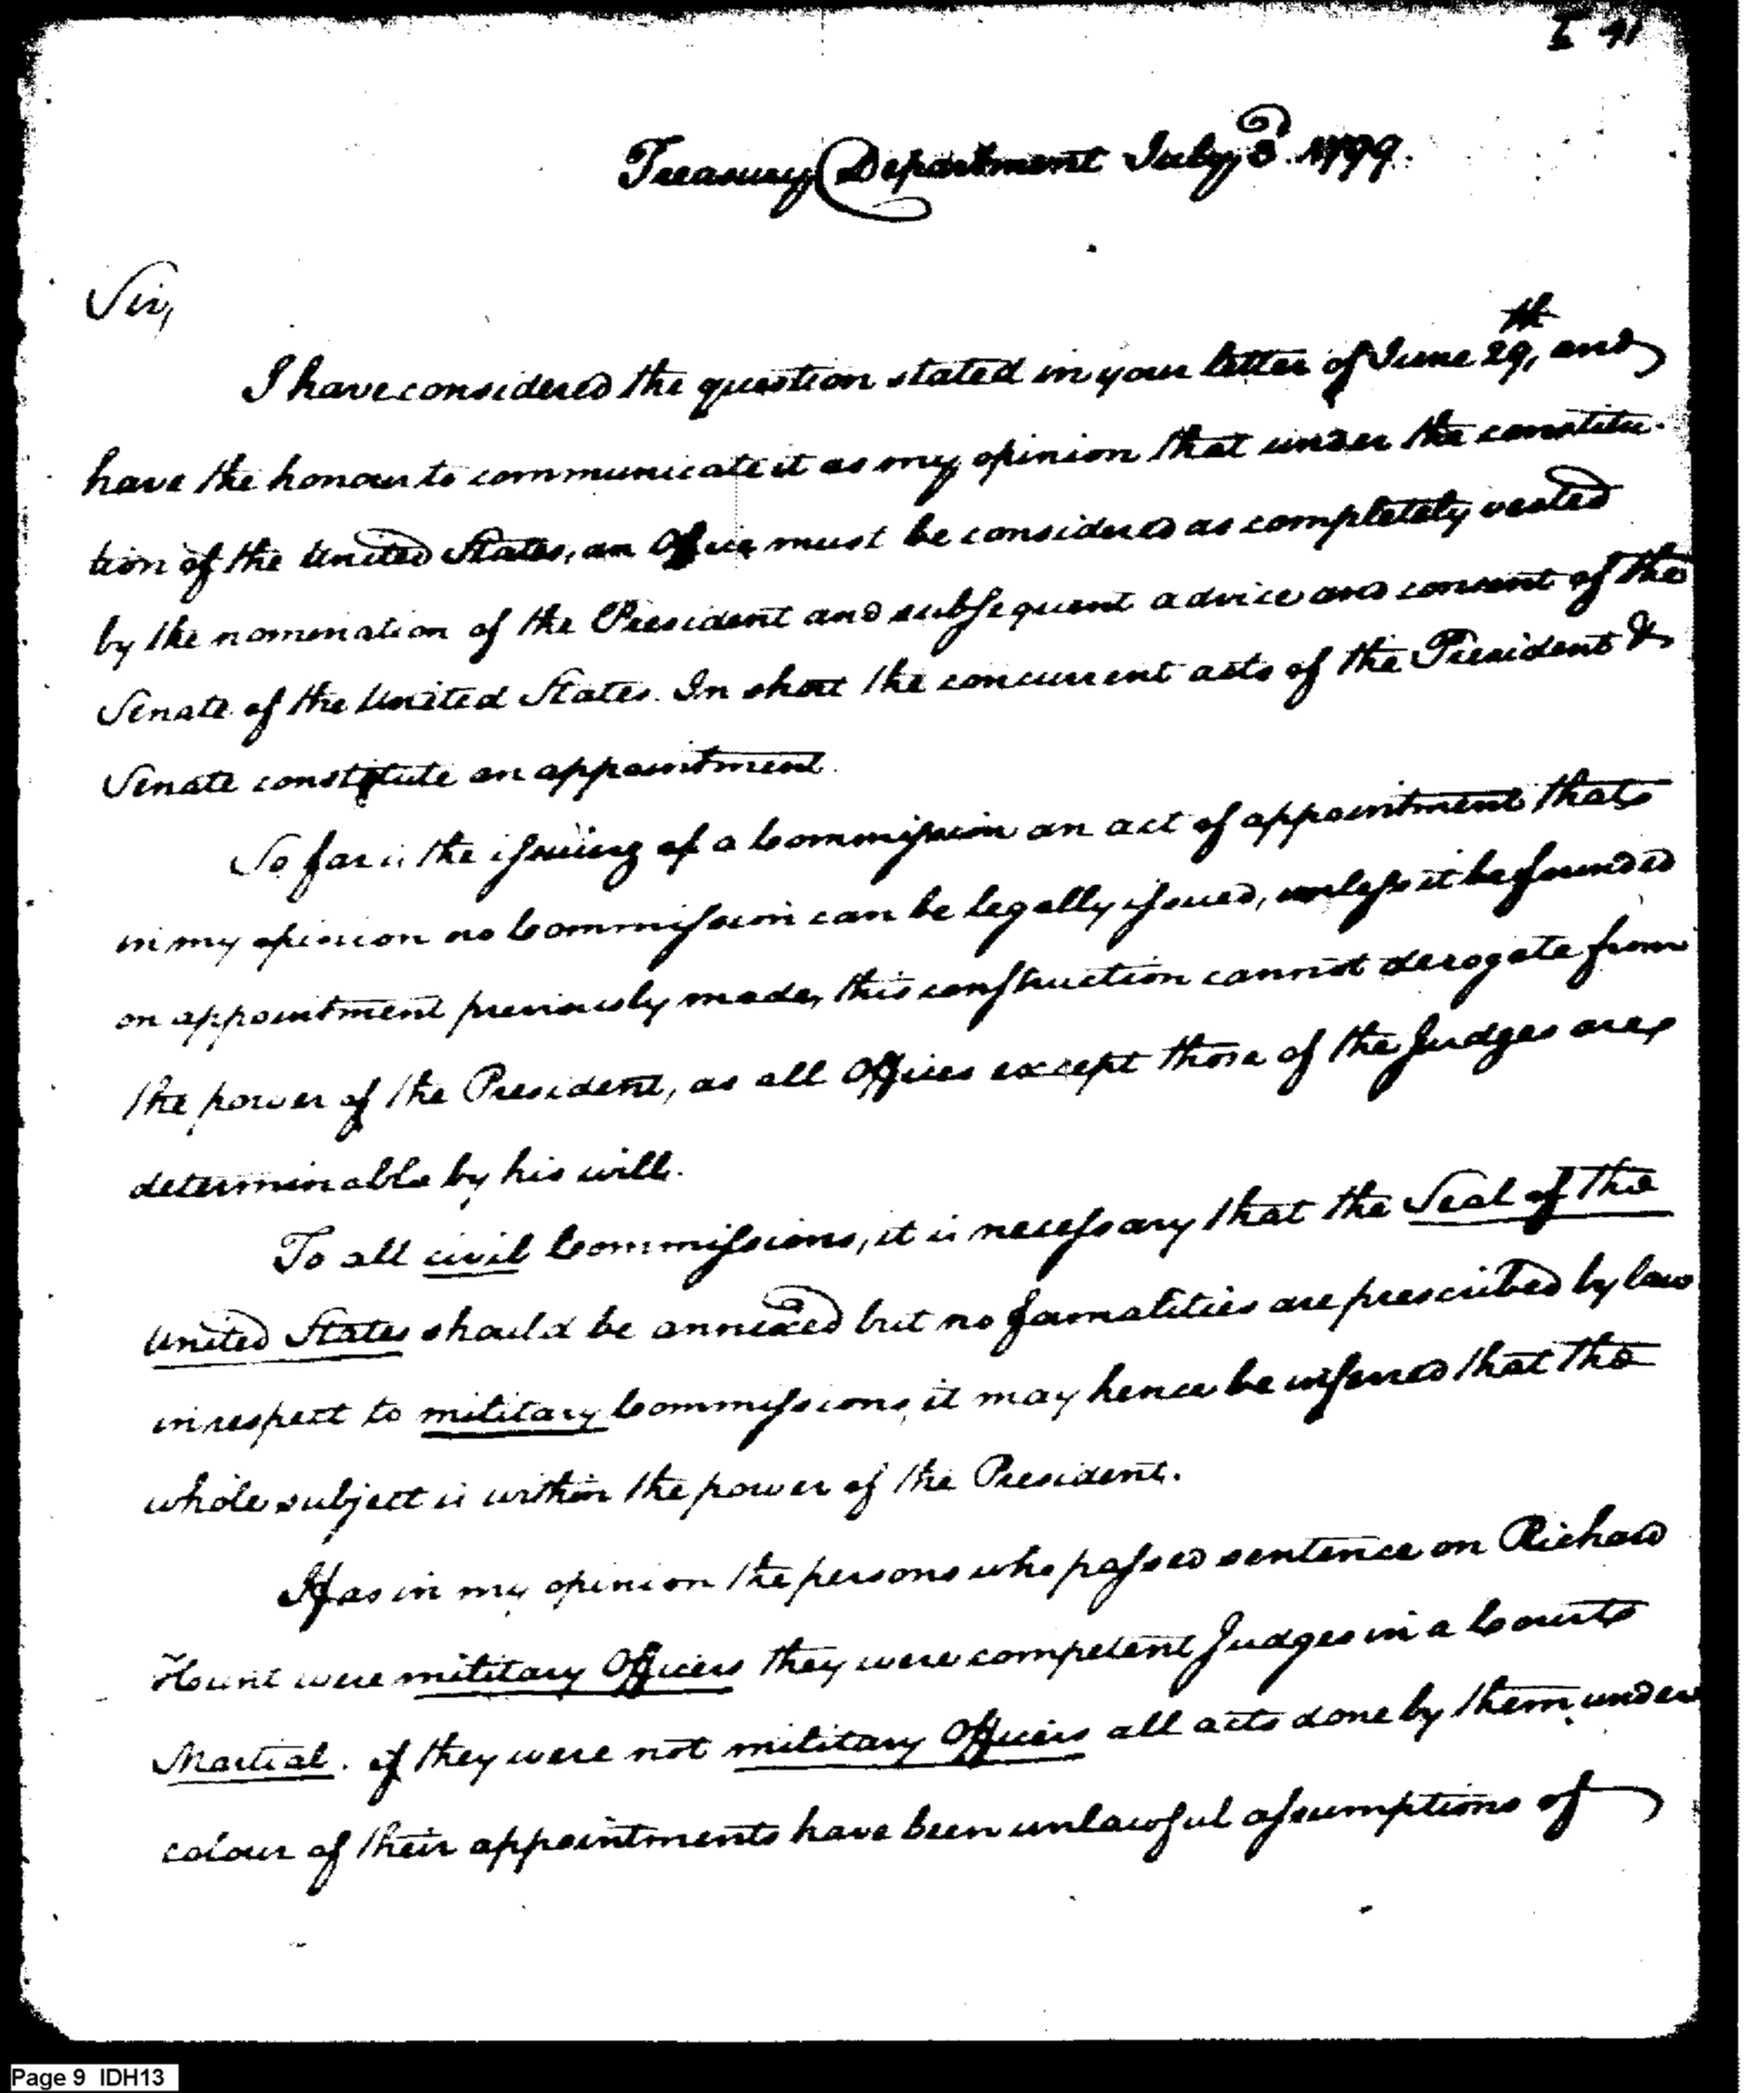 I 41
Treasury Department July 3d. 1799.
Sir,
I have considered the question stated in your letter of June 29th, and
have the honour to communicate it as my opinion that under the constitu-
tion of the United States, an Office must be considered as completely vested
by the nomination of the President and subsequent advice and consent of the
Senate of the United States. In short the concurrent acts of the President &
Senate constitute an appointment.
So far is the issuing of a Commission an act of appointment that
in my opinion no Commission can be legally issued, unless it be founded
on appointment previously made, this construction cannot derogate from
the power of the President, as all Offices except those of the Judges are
determinable by his will.
To all civil Commissions, it is necessary that the Seal of the
United States should be annexed but no formalities are prescribed by law
in respect to military Commissions, it may hence be inferred that the
whole subject is within the power of the President.
If as in my opinion the persons who passed sentence on Richard
Hunt were military Officers they were competent Judges in a Court
Martial. if they were not military Officers all acts done by them under
colour of their appointments have been unlawful assumptions of
Page 9 IDH13